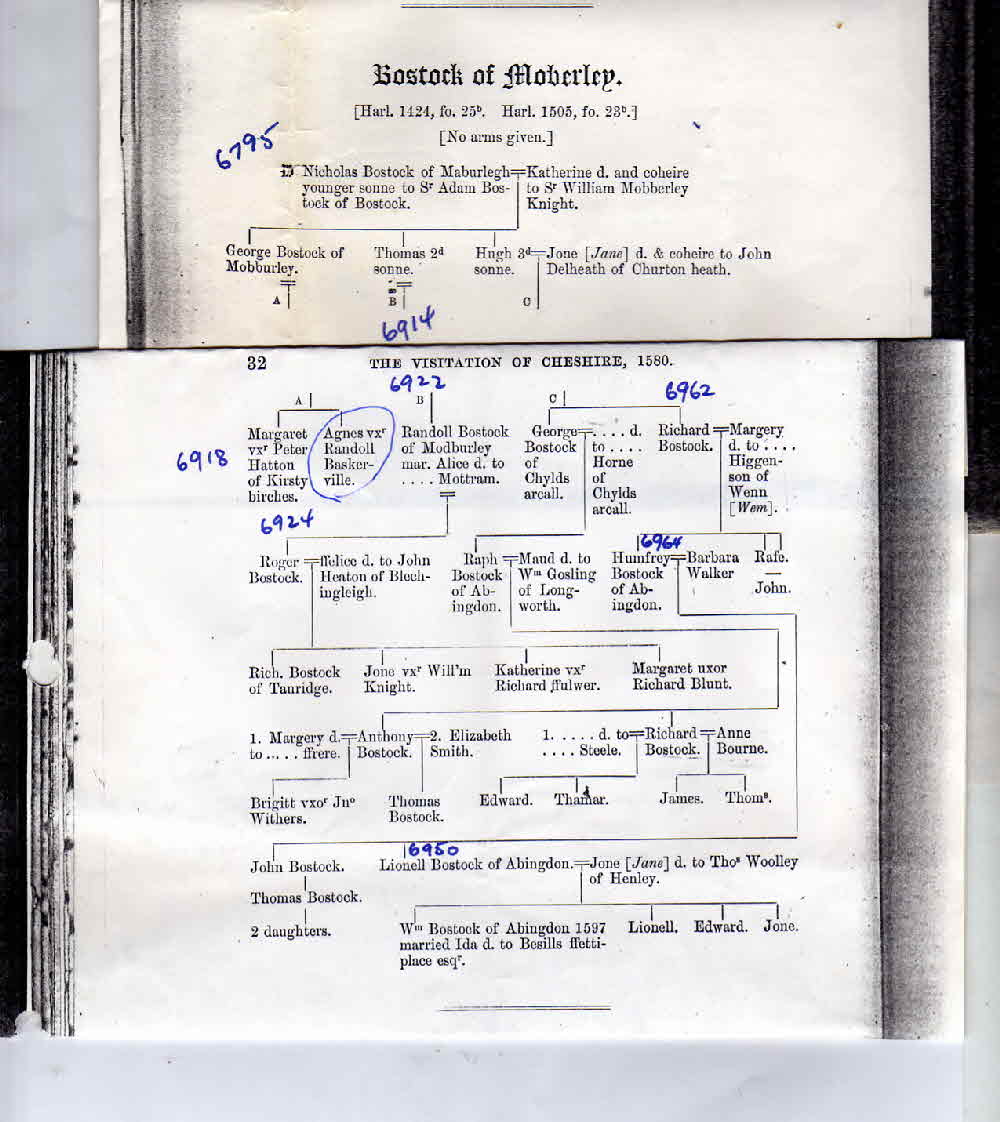 Bostock of Moberley.
[Harl. 1424, fo. 25ᵇ. Harl. 1505, fo. 23ᵇ.]
[No arms given.]
6795
Nicholas Bostock of Maburlegh
younger sonne to Sʳ Adam Bos-
tock of Bostock.
Katherine d. and coheire
to Sʳ William Mobberley
Knight.
George Bostock of
Mobburley.
A
Thomas 2ᵈ
sonne.
B
6914
Hugh 3ᵈ
sonne.
Jone [Jane] d. & coheire to John
Delheath of Churton heath.
C
32
THE VISITATION OF CHESHIRE, 1580.
A
6922
B
C
6962
6918
Margaret
vxʳ Peter
Hatton
of Kirsty
birches.
Agnes vxʳ
Randoll
Basker-
ville.
Randoll Bostock
of Modburley
mar. Alice d. to
. . . . Mottram.
George
Bostock
of
Chylds
arcall.
. . . . d.
to . . . .
Horne
of
Chylds
arcall.
Richard
Bostock.
Margery
d. to . . . .
Higgen-
son of
Wenn
[Wem].
6924
Roger
Bostock.
ffelice d. to John
Heaton of Blech-
ingleigh.
Raph
Bostock
of Ab-
ingdon.
Maud d. to
Wᵐ Gosling
of Long-
worth.
6964
Humfrey
Bostock
of Ab-
ingdon.
Barbara
Walker
Rafe.
—
John.
Rich. Bostock
of Tanridge.
Jone vxʳ Will'm
Knight.
Katherine vxʳ
Richard ffulwer.
Margaret uxor
Richard Blunt.
1. Margery d.
to . . . . ffrere.
Anthony
Bostock.
2. Elizabeth
Smith.
1. . . . . d. to
. . . . Steele.
Richard
Bostock.
Anne
Bourne.
Brigitt vxoʳ Jnᵒ
Withers.
Thomas
Bostock.
Edward.
Thamar.
James.
Thomˢ.
John Bostock.
Thomas Bostock.
2 daughters.
6950
Lionell Bostock of Abingdon.
Jone [Jane] d. to Thoˢ Woolley
of Henley.
Wᵐ Bostock of Abingdon 1597
married Ida d. to Besills ffetti-
place esqʳ.
Lionell.
Edward.
Jone.